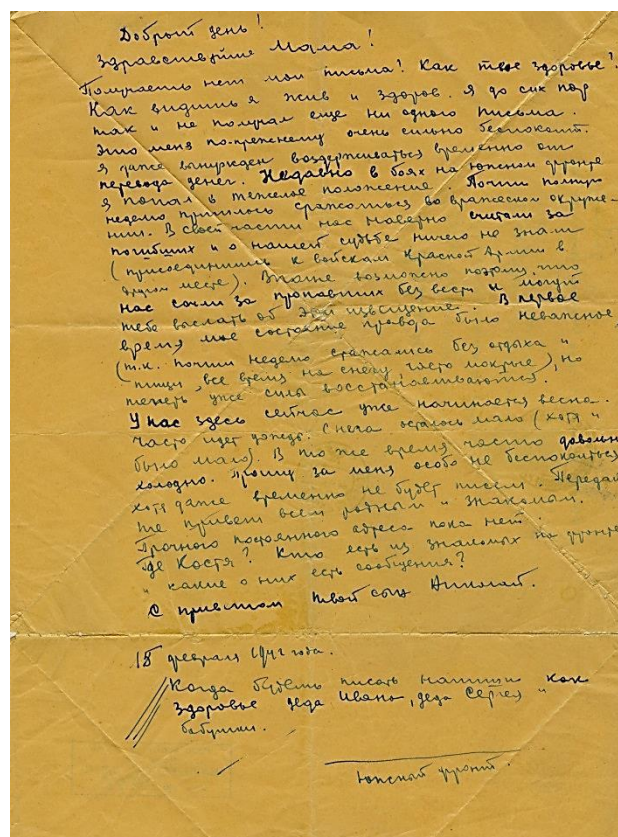 Добрый день!
Здравствуйте Мама!
Получаешь нет мои письма? Как твое здоровье?
Как видишь я жив и здоров. Я до сих пор
так и не получал еще ни одного письма.
Это меня по-прежнему очень сильно беспокоит.
Я даже вынужден воздерживаться временно от
перевода денег. Недавно в боях на южном фронте
я попал в тяжелое положение. Почти полную
неделю пришлось сражаться во вражеском окруже-
нии. В своей части нас наверно считали за
погибших и о нашей судьбе ничего не знали
(присоединились к войскам Красной Армии в
другом месте). Вполне возможно поэтому, что
нас сочли за пропавших без вести и могут
тебе выслать об этом извещение. В первое
время мое состояние правда было неважное,
(т.к. почти неделю сражались без отдыха и
пищи, все время на снегу часто мокрые), но
теперь уже силы восстанавливаются.
У нас здесь сейчас уже начинается весна.
Часто идет дождь. Снега осталось мало (хотя и
было мало). В то же время часто довольно
холодно. Прошу за меня особо не беспокоиться
хотя даже временно не будет писем. Передай
те привет всем родным и знакомым.
Прочного постоянного адреса пока нет
Где Костя? Кто есть из знакомых на фронте
и какие о них есть сообщения?
С приветом твой сын Николай.
18 февраля 1942 года.
Когда будешь писать напиши как
здоровье деда Ивана, деда Сергея и
бабушки.
Южный фронт.